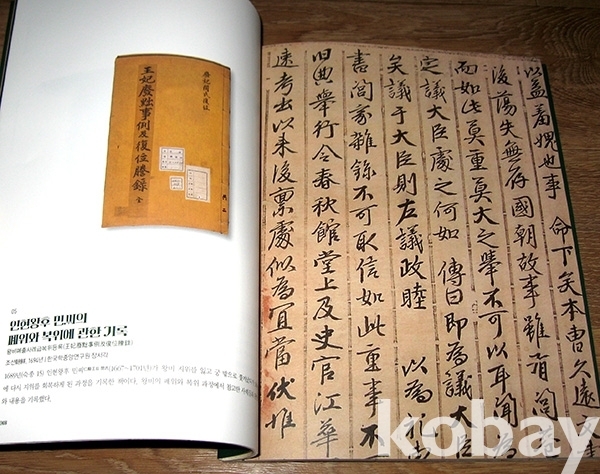 廢妃國氏復位
王妃廢黜事例及復位謄錄 全
05
인현왕후 민씨의
폐위와 복위에 관한 기록
왕비폐출사례급복위등록(王妃廢黜事例及復位謄錄)
조선 1694년 | 한국학중앙연구원 장서각
1689년(숙종 15) 인현왕후 민씨(1667~1701)가 왕비 지위를 잃고 궁 밖으로
에 다시 지위를 회복하게 된 과정을 기록한 책이다. 민비의 폐위와 복위 과정에서 참고한 사례
와 내용을 기록했다.
以益羞愧也事 命下矣本曹久遠文
後蕩失無存國朝故事雖有閭巷
而如此莫重莫大之擧不可以耳聞為
定議大臣處之何如 傳曰即為議大臣
矣議于大臣則左議政睦 以為
書閭家雜錄不可取信如此重事不
旧典擧行令春秋館堂上及史官江華
速考出以来後禀處似為宜當伏惟
kobay